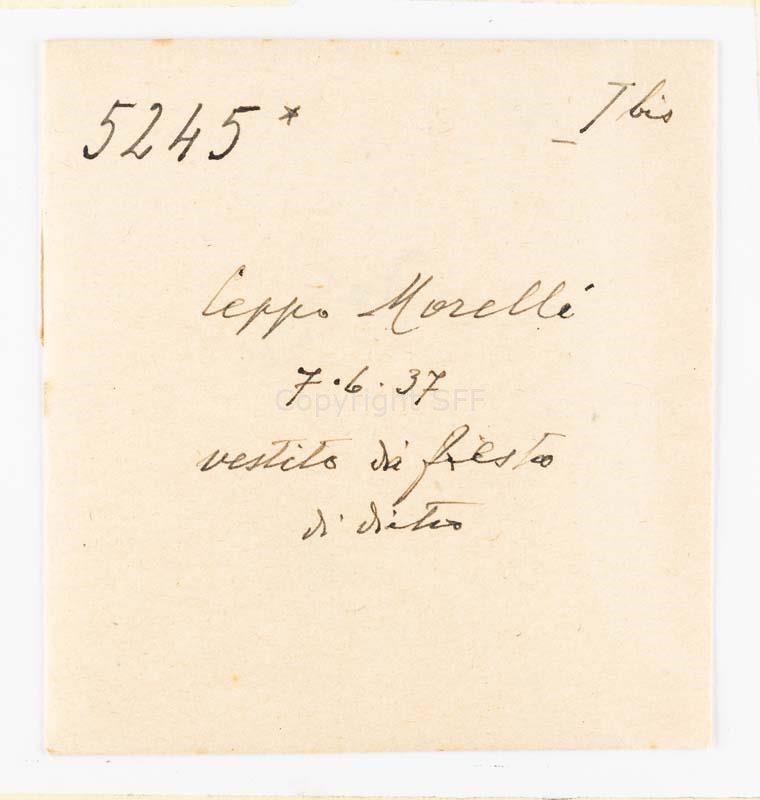 5245* I bis
Ceppo Morelli
7.6.37
Copyright SFF
vestito di festa
di dietro